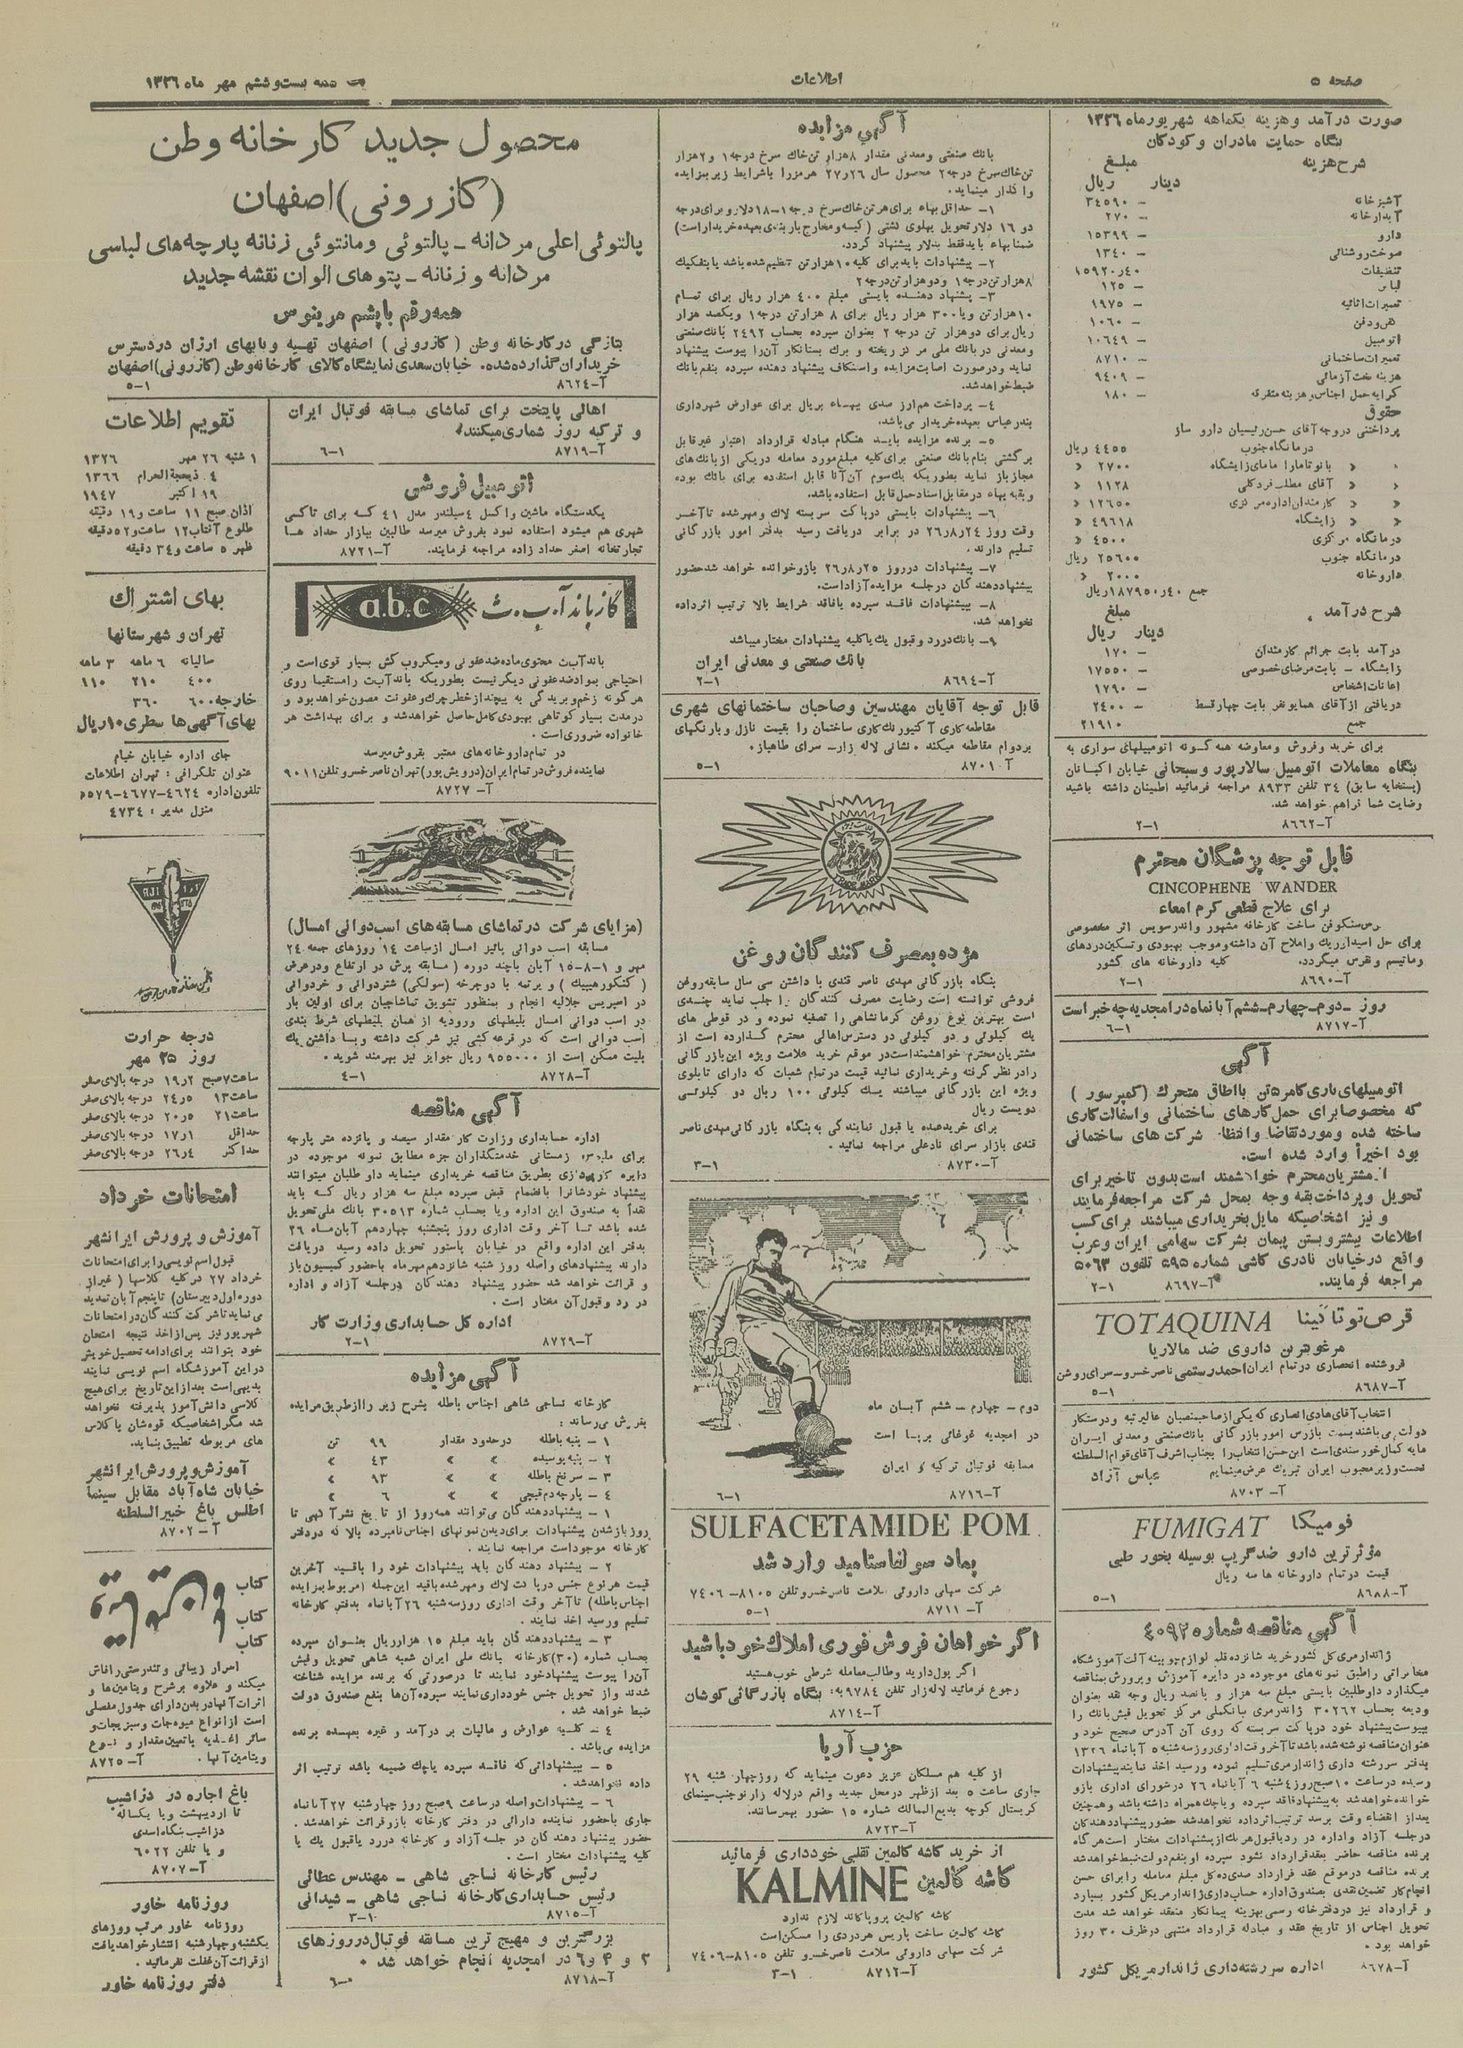 صفحه ۵
اطلاعات
بست‌وششم مهر ماه ۱۳۲۶
صورت درآمد وهزینه یکماهه شهریورماه ۱۳۲۶
بنگاه حمایت مادران وکودکان
شرح‌هزینه مبلغ
دینار ریال
آشپزخانه — ۳۴۵۹۰
آبدارخانه — ۲۷۰
دارو — ۱۵۳۹۹
سوخت‌روشنائی — ۱۳۴۰
تنظیفات ۱۵۹۲۰٫۴۰
— ۱۲۵
تعمیرات‌اثاثیه — ۱۹۷۵
— ۱۰۶۰
اتومبیل — ۱۰۶۴۹
تعمیرات‌ساختمانی — ۸۷۱۰
— ۹۴۰۹
کرایه‌حمل اجناس‌وهزینه متفرقه — ۱۸۰
حقوق
پرداختی دروجه‌آقای حسن‌رئیسیان دارو ساز
درمانگاه‌جنوب ۴۴۵۵ ریال
بانوتامارا مامای‌زایشگاه ۲۷۰۰ «
۱۱۲۸ «
کارمندان‌اداره‌مرکزی ۱۲۶۵۰ «
زایشگاه ۴۹۶۱۸ «
درمانگاه مرکزی ۴۵۰۰ «
درمانگاه جنوب ۲۵۶۰۰ ریال
داروخانه ۲۰۰۰ «
جمع ۴۰ر۱۸۷۹۵۰ریال
شرح درآمد مبلغ
دینار ریال
درآمد بابت جرائم کارمندان — ۱۷۰
زایشگاه — بابت‌مرضای‌خصوصی — ۱۷۵۵۰
اعانات‌اشخاص — ۱۷۹۰
دریافتی ازآقای همایونفر بابت چهارقسط — ۲۴۰۰
جمع ۲۱۹۱۰
برای خرید وفروش ومعاوضه همه گونه اتومبیلهای سواری به
بنگاه معاملات اتومبیل سالارپور وسبحانی خیابان اکباتان
(پستخانه سابق) ۳۴ تلفن ۸۹۳۳ مراجعه فرمائید اطمینان داشته باشید
رضایت شما فراهم خواهد شد.
آ—۸۶۶۲ ۲—۱
قابل توجه پزشگان محترم
CINCOPHENE WANDER
برای علاج قطعی کرم امعاء
قرص‌سنکوفن ساخت کارخانه مشهور واندرسویس اثر مخصوصی
برای حل اسیداوریک واملاح آن داشته‌وموجب بهبودی وتسکین‌دردهای
رماتیسم و نقرس میگردد. کلیه داروخانه های کشور
آ—۸۶۹۰ ۲—۱
روز ـ دوم ـ چهارم ـ ششم آبانماه درامجدیه چه خبر است
آ—۸۷۱۷ ۶—۱
آگهی
اتومبیلهای باری‌کامر۵تن بااطاق متحرک (کمپرسور)
که مخصوصابرای حمل کارهای ساختمانی واسفالت‌کاری
ساخته شده وموردتقاضا وانتظار شرکت های ساختمانی
بود اخیراً وارد شده است.
از مشتریان‌محترم خواهشمنداست‌بدون تاخیربرای
تحویل وپرداخت‌بقیه وجه بمحل شرکت مراجعه‌فرمایند
و نیز اشخاصیکه مایل‌بخریداری‌میباشند برای‌کسب
اطلاعات بیشتروبستن پیمان بشرکت سهامی ایران‌وعرب
واقع درخیابان نادری کاشی شماره ۵۹۵ تلفون ۵۰۶۳
مراجعه فرمایند. آ—۸۶۹۷ ۲—۱
قرص‌توتاکینا TOTAQUINA
مرغوبترین داروی ضد مالاریا
فروشنده انحصاری درتمام ایران‌احمدرستمی ناصرخسرو—سرای‌روشن
آ—۸۶۸۷ ۵—۱
انتخاب‌آقای‌هادی‌انصاری که‌یکی‌ازصاحبمنصبان عالیرتبه ودرستکار
دولت می‌باشندبسمت بازرس امور بازرگانی بانک‌صنعتی ومعدنی ایران
مایه کمال‌خورسندی‌است این‌حسن‌انتخاب‌را بجناب‌اشرف آقای‌قوام‌السلطنه
نخست‌وزیرمحبوب ایران تبریک عرض‌مینمایم عباس آزاد
آ—۸۷۰۳
فومیگا FUMIGAT
مؤثرترین دارو ضدگریپ بوسیله بخور طبی
قیمت درتمام داروخانه ها سه ریال
آ—۸۶۸۸ ۵—۱
آگهی مناقصه شماره ۴۰۹۲۵
ژاندارمری کل کشورخرید شانزده‌قلم لوازم‌چوبینه آلت‌آموزشگاه
مخابراتی راطبق نمونه‌های موجوده در دایره آموزش وپرورش‌بمناقصه
میگذارد داوطلبین بایستی مبلغ سه هزار و پانصد ریال وجه نقد بعنوان
ودیعه بحساب ۳۰۲۶۲ ژاندرمری ببانک‌ملی مرکز تحویل فیش‌بانک را
بپیوست‌پیشنهاد خود درپاکت سربسته که روی آن آدرس صحیح خود و
عنوان‌مناقصه نوشته‌شده باشدتاآخروقت‌اداری‌روزسه‌شنبه۵ آبانماه ۱۳۲۶
بدفتر سررشته داری ژاندارمری‌تسلیم نموده ورسید اخذ نمایندپیشنهادات
رسیده درساعت ۱۰صبح‌روز۴شنبه ۶ آبانماه ۲۶ درشورای اداری بازو
خوانده‌خواهدشد به‌پیشنهادفاقد سپرده وباچک‌همراه داشته‌باشد وهمچنین
بعداز انقضاء وقت برسد ترتیب‌اثرداده نخواهدشد حضورپیشنهاددهندگان
درجلسه آزاد واداره در ردیاقبول‌هریک‌ازپیشنهادات مختار است‌هرگاه
برنده مناقصه حاضر بعقدقرارداد نشود سپرده اوبنفع‌دولت‌ضبط‌خواهدشد
برنده مناقصه درموقع عقد قرارداد صدی‌ده‌کل مبلغ معامله رابرای حسن
انجام‌کار تضمین‌نقدی بصندوق‌اداره حساب‌داری‌ژاندارمریکل کشور بسپارد
و قرارداد نیز دردفترخانه رسمی‌بهزینه پیمانکار منعقد خواهد شد مدت
تحویل اجناس از تاریخ عقد و مبادله قرارداد منتهی درظرف ۳۰ روز
خواهد بود.
آ—۸۶۷۸ اداره سررشته‌داری ژاندارمریکل کشور
آگهی مزایده
بانک صنعتی ومعدنی مقدار ۸هزار تن‌خاک سرخ درجه۱ و۲هزار
تن‌خاک‌سرخ درجه۲ محصول سال ۲۶و۲۷ هرمزرا باشرایط زیربمزایده
واگذار مینماید.
۱— حداقل‌بهاء برای‌هرتن‌خاک‌سرخ درجه۱—۱۸دلاروبرای‌درجه
دو ۱۶ دلارتحویل پهلوی کشتی (کیسه‌ومخارج‌باربندی‌بعهده‌خریداراست)
ضمنابهاء بایدفقط بدلار پیشنهاد گردد.
۲— پیشنهادات بایدبرای کلیه ۱۰هزارتن تنظیم‌شده‌باشد یابتفکیک
۸هزارتن‌درجه۱ ودوهزارتن‌درجه۲
۳— پیشنهاد دهنده بایستی مبلغ ۴۰۰ هزار ریال برای تمام
۱۰هزارتن ویا۳۰۰ هزار ریال برای ۸ هزارتن درجه۱ ویکصد هزار
ریال‌برای دوهزار تن درجه ۲ بعنوان سپرده بحساب ۲۴۹۲ بانک‌صنعتی
ومعدنی دربانک ملی مرکزریخته و برگ بستانکار آن‌را پیوست پیشنهاد
نماید ودرصورت اصابت‌مزایده واستنکاف پیشنهاد دهنده سپرده بنفع‌بانک
ضبط‌خواهدشد.
۴— پرداخت هم‌ارز صدی بهاء بریال برای عوارض شهرداری
بندرعباس بعهده‌خریدار می‌باشد.
۵— برنده مزایده باید هنگام مبادله قرارداد اعتبار غیرقابل
برگشتی بنام‌بانک صنعتی برای‌کلیه مبلغ‌مورد معامله دریکی ازبانک‌های
مجازباز نماید بطوریکه یک‌سوم آن‌آنا قابل استفاده برای بانک بوده
وبقیه‌بهاء درمقابل‌اسناد‌حمل‌قابل استفاده‌باشد.
۶— پیشنهادات بایستی درپاکت سربسته لاک ومهرشده تاآخر
وقت روز ۲۶ر۸ر۲۴ در برابر دریافت رسید بدفتر امور بازرگانی
تسلیم دارند.
۷— پیشنهادات درروز ۲۶ر۸ر۲۵ بازوخوانده خواهد شدحضور
پیشنهاددهندگان درجلسه مزایده‌آزاداست.
۸— پیشنهادات فاقد سپرده یافاقد شرایط بالا ترتیب اثرداده
نخواهد شد.
۹— بانک‌دررد وقبول یک‌یاکلیه پیشنهادات مختارمیباشد
بانک صنعتی و معدنی ایران
آ—۸۶۹۴ ۲—۱
قابل توجه آقایان مهندسین وصاحبان ساختمانهای شهری
مقاطعه‌کاری آکیورنک‌کاری ساختمان را بقیمت نازل وبارنگهای
بردوام مقاطعه میکند. نشانی لاله زار— سرای طاهباز.
آ ۸۷۰۱ ۵—۱
مژده بمصرف کنندگان روغن
بنگاه بازرگانی مهدی ناصر قندی با داشتن سی سال سابقه‌روغن
فروشی توانسته است رضایت مصرف کنندگان را جلب نماید چندی
است بهترین نوع روغن کرمانشاهی را تصفیه نموده و در قوطی های
یک کیلوئی و دو کیلوئی در دسترس‌اهالی محترم گذارده است از
مشتریان‌محترم خواهشمنداست‌در موقع خرید علامت ویژه این‌بازرگانی
رادرنظرگرفته وخریداری نمائید قیمت درتمام شعبات که دارای تابلوی
ویژه این بازرگانی میباشد یک کیلوئی ۱۰۰ ریال دو کیلوئی
دویست ریال
برای خریدعمده یا قبول نمایندگی به‌بنگاه بازرگانی‌مهدی‌ناصر
قندی بازار سرای نادعلی مراجعه نمائید.
آ—۸۷۳۰ ۳—۱
دوم — چهارم — ششم آبان ماه
در امجدیه غوغائی برپا است
مسابقه فوتبال ترکیه و ایران
آ—۸۷۱۶ ۶—۱
SULFACETAMIDE POM
پماد سولفاستامید وارد شد
شرکت سهامی داروئی سلامت ناصرخسرو تلفن ۸۱۰۵—۷۴۰۶
آ—۸۷۱۱ ۵—۱
اگر خواهان فروش فوری املاک خود باشید
اگر پول‌دارید وطالب‌معامله شرطی خوب‌هستید
رجوع فرمائید لاله‌زار تلفن ۹۷۸۴ به: بنگاه بازرگانی‌کوشان
آ—۸۷۱۴
حزب آریا
از کلیه هم مسلکان عزیز دعوت مینماید که روزچهار شنبه ۲۹
جاری ساعت ۵ بعد ازظهر درمحل جدید واقع درلاله زارنوجنب‌سینمای
کریستال کوچه بدیع‌الممالک شماره ۱۵ حضور بهمرسانند.
آ—۸۷۲۳
از خرید کاشه کالمین تقلبی خودداری فرمائید
کاشه کالمین KALMINE
کاشه کالمین بروپاگاند لازم ندارد
کاشه کالمین ساخت پاریس هردردی را مسکن‌است
شرکت سهامی داروئی سلامت ناصرخسرو تلفن ۸۱۰۵—۷۴۰۶
آ—۸۷۱۲ ۳—۱
محصول جدید کارخانه وطن
(کازرونی) اصفهان
پالتوئی اعلی مردانه ـ پالتوئی ومانتوئی زنانه پارچه‌های لباسی
مردانه و زنانه ـ پتوهای الوان نقشه جدید
همه‌رقم باپشم مرینوس
بتازگی در کارخانه وطن (کازرونی) اصفهان تهیه وببهای ارزان دردسترس
خریداران‌گذارده‌شده. خیابان‌سعدی نمایشگاه‌کالای کارخانه‌وطن (کازرونی) اصفهان
آ—۸۶۲۴ ۵—۱
اهالی پایتخت برای تماشای مسابقه فوتبال ایران
و ترکیه روز شماری‌میکنند.
آ—۸۷۱۹ ۶—۱
اتومبیل فروشی
یکدستگاه ماشین واکسل ۴سیلندر مدل ۴۱ که برای تاکسی
شهری هم میشود استفاده نمود بفروش میرسد طالبین ببازار حداد ها
تجارتخانه اصغر حداد زاده مراجعه فرمایند. آ—۸۷۲۱
گاز باند آ.ب.ث a.b.c
باندآب‌ث محتوی‌ماده‌ضدعفونی ومیکروب کش بسیار قوی‌است و
احتیاجی بموادضدعفونی دیگرنیست بطوریکه باندآب‌ث رامستقیما روی
هرگونه زخم‌وبریدگی به پیچندازخطرچرک‌وعفونت مصون‌خواهدبود و
درمدت بسیارکوتاهی بهبودی‌کامل‌حاصل خواهدشد و برای بهداشت هر
خانواده ضروری‌است.
در تمام‌داروخانه‌های معتبر بفروش‌میرسد
نماینده‌فروش‌درتمام‌ایران(درویش‌پور)تهران‌ناصرخسروتلفن۹۰۱۱
آ— ۸۷۲۷
(مزایای شرکت درتماشای مسابقه‌های اسب‌دوانی امسال)
مسابقه اسب دوانی پائیز امسال ازساعت ۱۴ روزهای جمعه ۲۴
مهر و ۱—۸—۱۵ آبان باچند دوره (مسابقه پرش در ارتفاع ودرعرض
(کنکورهیپیک) و یرتمه با دوچرخه (سولکی) شتردوانی و خردوانی
در اسپریس جلالیه انجام و بمنظور تشویق تماشاچیان برای اولین بار
در اسب دوانی امسال بلیطهای ورودیه از همان بلیطهای شرط بندی
اسب دوانی است که در قرعه کشی نیز شرکت داشته وبسا داشتن یک
بلیت ممکن است از ۹۵۵۰۰۰ ریال جوایز نیز بهرمند شوید.
آ—۸۷۲۸ ۴—۱
آگهی مناقصه
اداره حسابداری وزارت کار مقدار سیصد و پانزده متر پارچه
برای ملبوس زمستانی خدمتگذاران جزء مطابق نمونه موجوده در
دایره کارپردازی بطریق مناقصه خریداری مینماید داو طلبان میتوانند
پیشنهاد خودشانرا باانضمام قبض سپرده مبلغ سه هزار ریال که باید
نقداً به صندوق این اداره ویا بحساب شماره ۳۰۵۱۳ بانک ملی‌تحویل
شده باشد تا آخر وقت اداری روز پنجشنبه چهاردهم آبان‌ماه ۲۶
بدفتر این اداره واقع در خیابان پاستور تحویل داده رسید دریافت
دارند پیشنهادهای واصله روز شنبه شانزدهم‌مهرماه باحضور کمیسیون‌باز
و قرائت خواهد شد حضور پیشنهاد دهندگان درجلسه آزاد و اداره
در رد وقبول‌آن مختار است.
اداره کل حسابداری وزارت کار
آ—۸۷۲۹ ۲—۱
آگهی مزایده
کارخانه نساجی شاهی اجناس باطله بشرح زیر راازطریق‌مزایده
بفروش میرساند:
۱ — پنبه‌باطله درحدود مقدار ۹۹ تن
۲ — پنبه‌پوسیده » » ۴۳ »
۳ — سرنخ باطله » » ۹۳ »
۴ — پارچه‌دم‌قیچی » » ۶ »
۱ — پیشنهاددهندگان می‌توانند همه‌روز از تاریخ نشرآگهی تا
روزبازشدن پیشنهادات برای‌دیدن نمونهای اجناس‌نامبرده بالا که دردفتر
کارخانه موجوداست مراجعه نمایند.
۲ — پیشنهاد دهندگان باید پیشنهادات خود را باقید آخرین
قیمت هرنوع جنس درپاکت لاک ومهرشده باقید این‌جمله (مربوط‌بمزایده
اجناس‌باطله) تاآخر وقت اداری روزسه‌شنبه ۲۶آبانماه بدفتر کارخانه
تسلیم ورسید اخذ نمایند.
۳ — پیشنهاددهندگان باید مبلغ ۱۵ هزارریال بعنوان سپرده
بحساب شماره (۳۰)کارخانه بانک ملی ایران شعبه شاهی تحویل وفیش
آن‌را پیوست پیشنهادخود نمایند تا درصورتی که برنده مزایده شناخته
شدند واز تحویل جنس خودداری‌نمایند سپرده آن‌ها بنفع صندوق دولت
ضبط خواهد شد.
۴ — کلیه عوارض و مالیات بر درآمد و غیره بعهده برنده
مزایده می‌باشد.
۵ — پیشنهاداتی‌که فاقد سپرده یاچک ضمیمه باشد ترتیب اثر
داده نخواهدشد.
۶ — پیشنهادات‌واصله درساعت ۹صبح روز چهارشنبه ۲۷آبانماه
جاری باحضور نماینده دارائی در دفتر کارخانه بازوقرائت خواهدشد.
حضور پیشنهاد دهندگان در جلسه آزاد و کارخانه دررد یاقبول یک یا
کلیه پیشنهادات مختار است.
رئیس کارخانه نساجی شاهی — مهندس عطائی
رئیس حسابداری‌کارخانه نساجی شاهی — شیدانی
آ—۸۷۱۵ ۳—۱۰
بزرگترین و مهیج ترین مسابقه فوتبال درروزهای
۲ و ۴ و ۶ در امجدیه انجام خواهد شد.
آ—۸۷۱۸
تقویم اطلاعات
۱ شنبه ۲۶ مهر ۱۳۲۶
۴ ذیحجة الحرام ۱۳۶۶
۱۹ اکتبر ۱۹۴۷
اذان صبح ۱۱ ساعت و۱۹ دقیقه
طلوع آفتاب۱۲ ساعت‌و۵۲دقیقه
ظهر ۵ ساعت‌و۳۴ دقیقه
بهای اشتراک
تهران و شهرستانها
سالیانه ۶ ماهه ۳ ماهه
۴۰۰ ۲۱۰ ۱۱۰
خارجه۶۰۰ ۳۶۰
بهای‌آگهی‌ها سطری۱۰ریال
جای اداره خیابان خیام
عنوان تلگرافی: تهران اطلاعات
تلفون‌اداره ۴۶۲۴—۴۶۷۷—۵۵۷۹
منزل مدیر: ۴۷۳۴
درجه حرارت
روز ۲۵ مهر
ساعت۷صبح ۱۹٫۲ درجه بالای‌صفر
ساعت۱۳ ۲۴٫۵ درجه بالای‌صفر
ساعت۲۱ ۲۰٫۵ درجه بالای‌صفر
حداقل ۱۷٫۱ درجه بالای‌صفر
حداکثر ۲۶٫۴ درجه بالای‌صفر
امتحانات خرداد
آموزش و پرورش ایرانشهر
قبول‌اسم‌نویسی‌رابرای‌امتحانات
خرداد ۲۷ درکلیه کلاسها (غیراز
دوره‌اول‌دبیرستان) تاپنجم‌آبان‌تمدید
می‌نماید تاشرکت کنندگان‌درامتحانات
شهریورنیز پس‌ازاخذ نتیجه امتحان
خود بتوانند برای‌ادامه تحصیل‌خویش
دراین آموزشگاه اسم نویسی نمایند
بدیهی‌است بعدازاین‌تاریخ برای‌هیچ
کلاسی دانش‌آموز پذیرفته نخواهد
شد مگراشخاصیکه قوه‌شان باکلاس
های مربوطه تطبیق‌بنماید.
آموزش‌وپرورش‌ایرانشهر
خیابان شاه‌آباد مقابل سینما
اطلس باغ خبیرالسلطنه
آ—۸۷۰۲
کتاب
کتاب
کتاب
اسرار زیبائی و تندرستی‌رافاش
میکند و علاوه برشرح ویتامین‌ها و
اثرات‌آنهادربدن‌دارای جدول‌مفصلی
است ازانواع میوه‌جات وسبزیجات‌و
سائر اغذیه باتعیین‌مقدار و نوع
ویتامین‌آنها. آ—۸۷۲۵
باغ اجاره در دزاشیب
تا اردیبهشت ویا یکساله
دزاشیب‌بنگاه‌اسدی
و یا تلفن ۶۰۲۲
آ—۸۷۰۷
روزنامه خاور
روزنامه خاور مرتب روزهای
یکشنبه‌وچهارشنبه انتشارخواهدیافت
ازقرائت‌آن‌غفلت نفرمائید.
دفتر روزنامه خاور